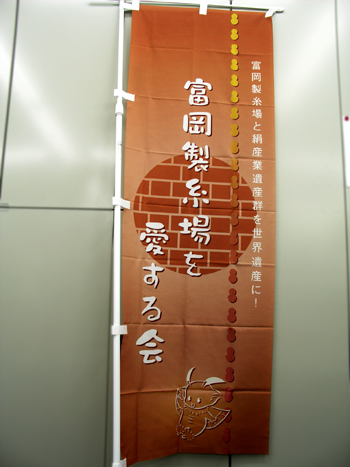 富岡製糸場と絹産業遺産群を世界遺産に!
富岡製糸場を
愛する会